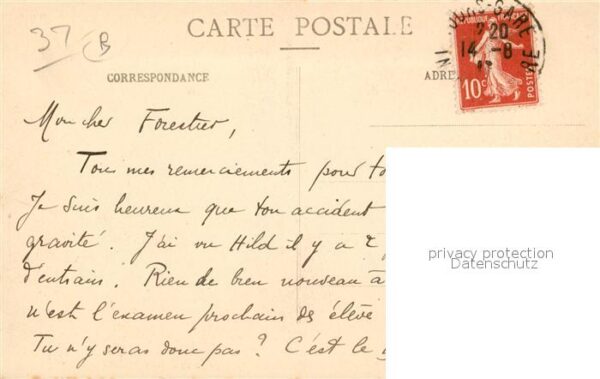 37 B
CARTE POSTALE
CORRESPONDANCE
ADRE
TOURS-GARE
20
14 - 8
IN RE
10c POSTES
Mon cher Forestier,
Tous mes remerciements pour
Je suis heureux que ton accident
gravité. J'ai vu Hild il y a 2
d'entrain. Rien de bien nouveau à
n'est l'examen prochain des élève
Tu n'y seras donc pas ? C'est le
privacy protection
Datenschutz